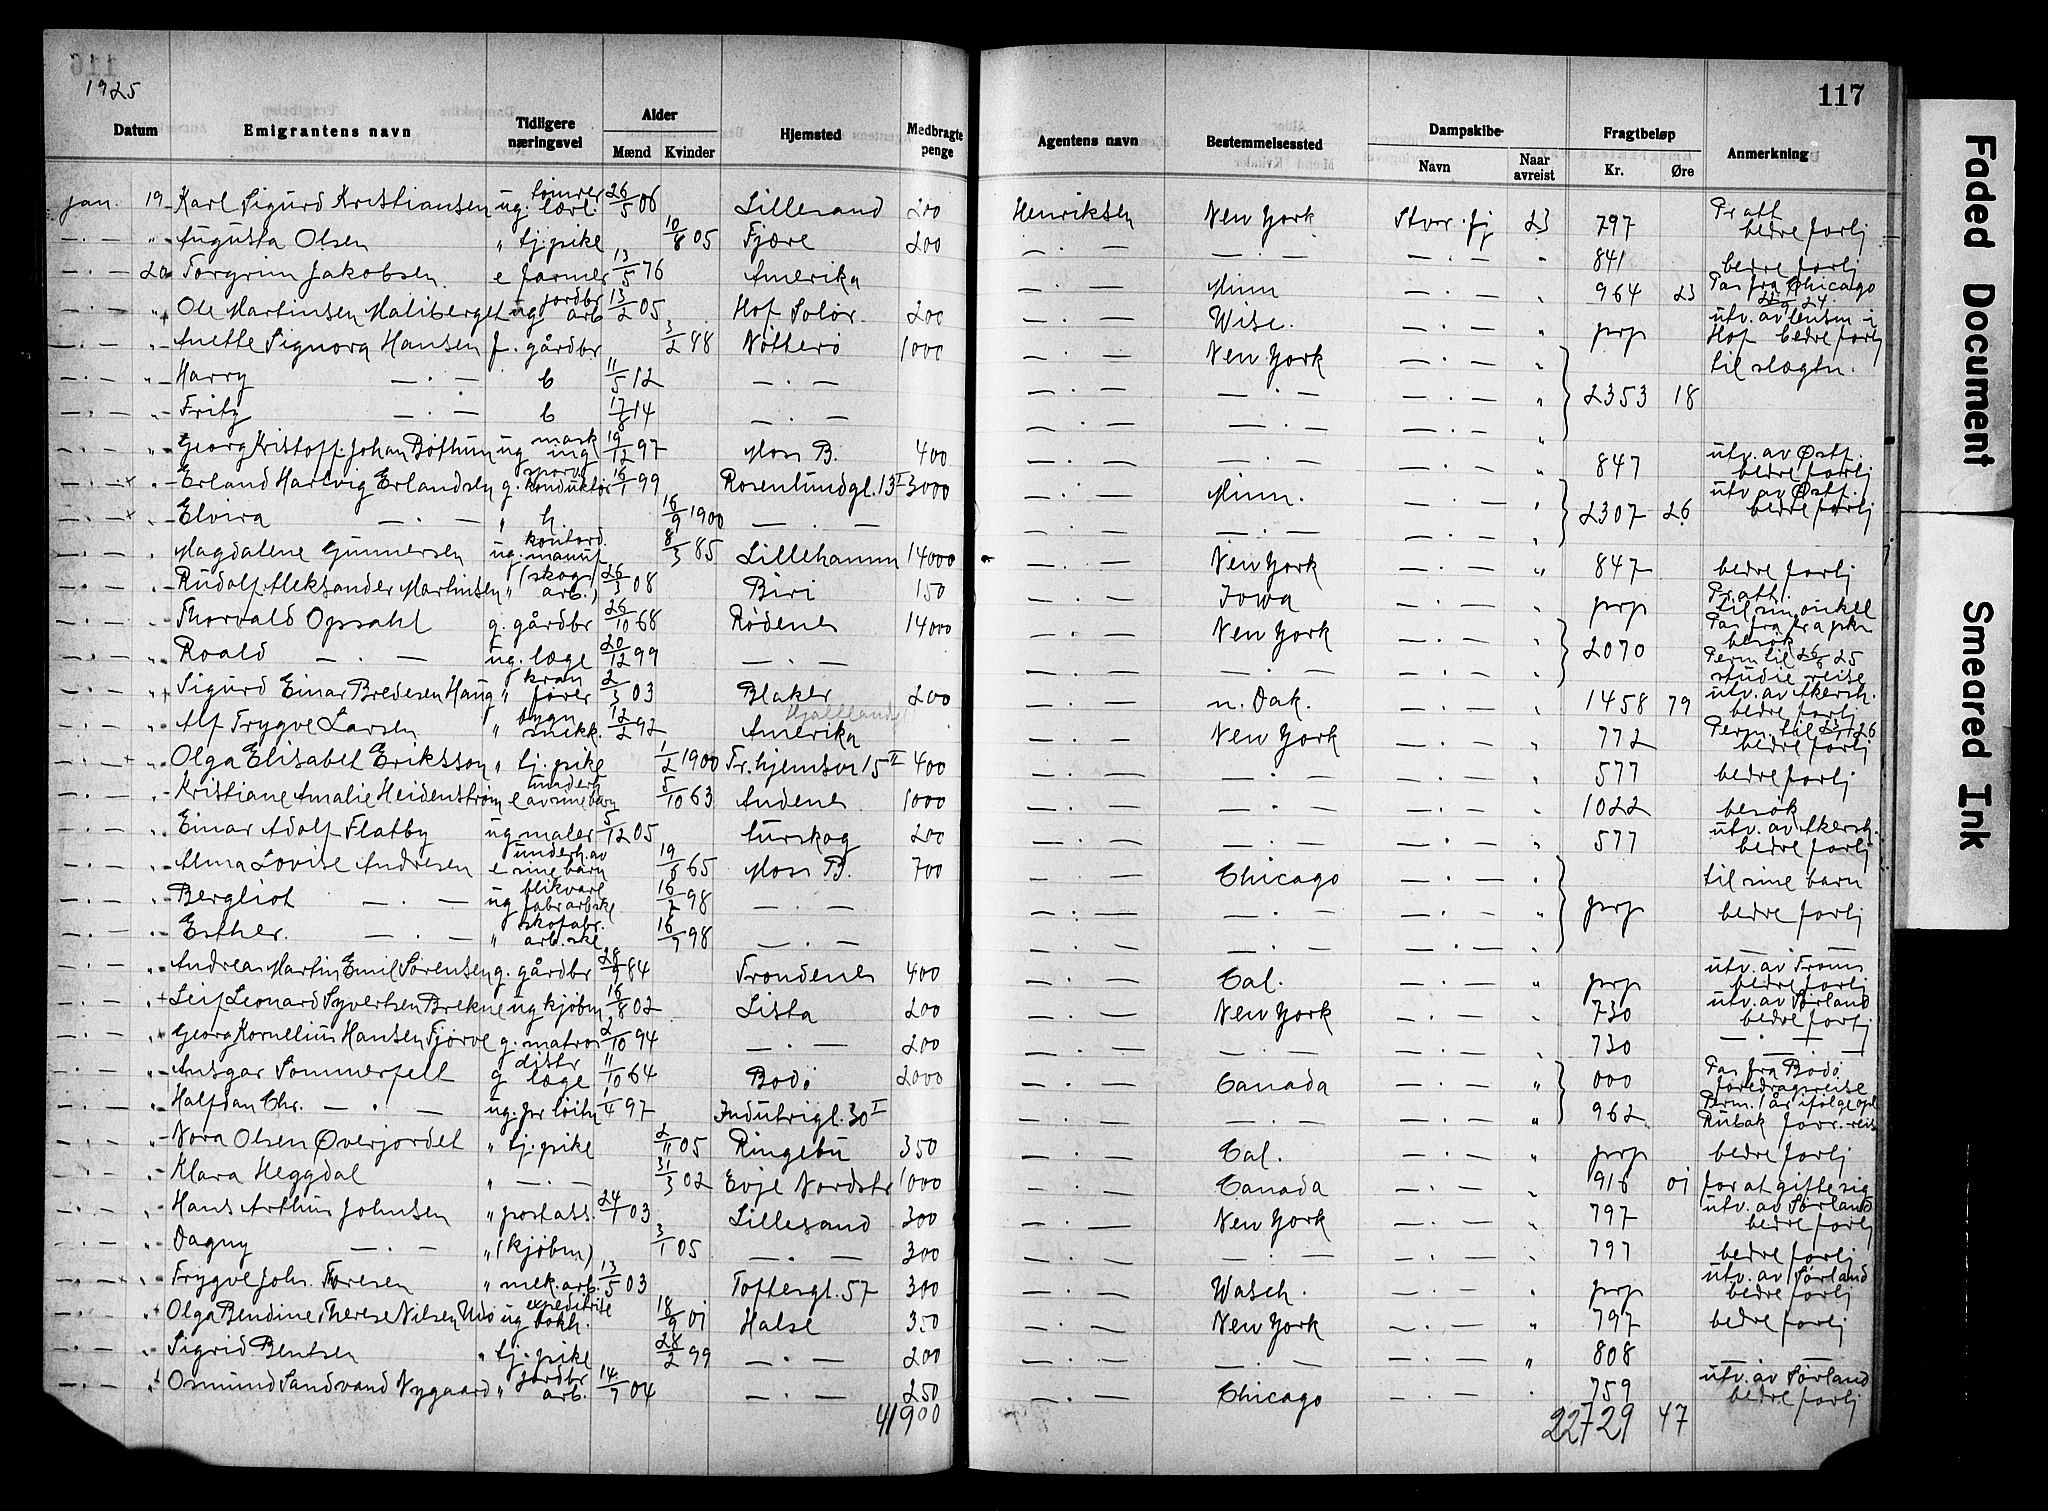 116
1925
117
Datum Emigrantens navn Tidligere næringsvei Alder Mænd Kvinder Hjemsted Medbragte penge Agentens navn Bestemmelsessted Dampskibe- Navn Naar avreist Fragtbeløp Kr. Øre Anmerkning
jan. 19 Karl Sigurd Kristiansen ug. tømrer lærl. 26/5 06 Lillesand 200 Henriksen New York Stvr. fj 23 797 Pratt bedre forlj
— · — " Augusta Olsen " tj. pike 10/8 05 Fjære 200 — · — — · — — · — " 841 bedre forlj
— · — 20 Torgrim Jakobsen e farmer 13/5 76 Amerika — · — Minn — · — " 964 23 Pas fra Chicago
— · — " Ole Martinsen Maliberget ug jordbr arb 13/2 05 Hof Solør. 200 — · — Wisc. — · — " prp utv. av lensm i Hof bedre forlj
— · — " Anette Signora Hansen f. gårdbr 3/2 88 Nøtterø 1000 — · — New York — · — " til slægtn.
— · — " Harry — · — b 11/5 12 — · — — · — — · — — · — " 2353 18
— · — " Fritz — · — b 17/8 14 — · — — · — — · — — · — "
— · — " Georg Kristoff. Johan Bøthun ug mask ing 19/12 97 Moss B. 400 — · — — · — — · — " 847 utv. av Østf. bedre forlj
— · — × " Erland Hartvig Erlandsen g. sporv. konduktør 16/1 99 Rosenlundgt. 13 I 3000 — · — Minn. — · — " utv. av Østf. bedre forlj
— · — × " Elvira — · — " h. 16/9 1900 — · — — · — — · — — · — 2307 26
— · — " Magdalene Gunnersen ug. kontord. manuf 8/3 85 Lillehamm 14000 — · — New York — · — " 847 bedre forlj
— · — " Rudolf Aleksander Martinsen " (skogs arb.) 26/3 08 Biri 150 — · — Iowa — · — " prp Pratt. til sin onkel
— · — " Thorvald Opsahl g. gårdbr 26/10 68 Rødenes 14000 — · — New York — · — " Pas fra besøk
— · — " Roald — · — ug. læge 20/12 99 — · — — · — — · — — · — " 2070 Perm til 26/6 25 studie reise
— · — + Sigurd Einar Bredesen Haug " kran fører 2/3 03 Blaker 200 — · — n. Dak. — · — " 1458 79 utv. av Akersh. bedre forlj
— · — " Alf Trygve Larsen " bygn snikk. 12/2 92 Amerika — · — New York — · — " 772 Perm. til 23/1 26 bedre forlj
— · — + " Olga Elisabet Eriksson " tj. pike 1/2 1900 Fr. hjemsvn 15 II 400 — · — — · — — · — " 577 bedre forlj
— · — " Kristiane Amalie Heidenstrøm e underh av sine barn 5/10 63 Andenes 1000 — · — — · — — · — " 1022 besøk
— · — " Einar Adolf Flatby ug maler 5/12 05 Aurskog 200 — · — — · — — · — " 577 utv. av Akersh. bedre forlj
— · — " Alma Lovise Andresen e underh. av sine barn 19/6 65 Moss B. 700 — · — Chicago — · — " til sine barn
— · — " Bergliot — · — ug blikvare fabr arbske 16/7 98 — · — — · — — · — — · — " prp bedre forlj
— · — " Esther. — · — " skofabr. arb. ske 16/7 98 — · — — · — — · — — · — " — · —
— · — " Andreas Martin Emil Sørensen g. gårdbr 28/9 84 Trondenes 400 — · — Cal. — · — " prp utv. av Troms bedre forlj
— · — + Leif Leonard Syvertsen Brekne ug kjøbm 16/8 02 Lista 200 — · — New York — · — " 730 utv. av Sørland bedre forlj
— · — " Georg Kornelius Hansen Fjørve g. matros 2/10 94 — · — 200 — · — — · — — · — " 730 — · —
— · — " Ansgar Sommerfelt g distr læge 11/10 64 Bodø 2000 — · — Canada — · — " 000 Pas fra Bodø foredragsreise
— · — " Halfdan Chr. — · — ug. 1/4 97 Indutrigt. 30 I — · — — · — — · — " 962 Perm. 1 år ifølge opl Rubak forr. reis
— · — " Nora Olsen Øverjordet " tj. pike 2/11 05 Ringebu 350 — · — Cal. — · — " prp bedre forlj
— · — " Klara Heggdal " — · — 31/3 02 Evje Nordstr 1000 — · — Canada — · — " 916 01 for at gifte sig
— · — " Hans Arthur Johnsen " postass. 24/1 03 Lillesand 300 — · — New York — · — " 797 utv. av Sørland bedre forlj
— · — " Dagny — · — " (kjøbm) 3/1 05 — · — 300 — · — — · — — · — " 797 bedre forlj
— · — " Trygve Joh. Thoresen " mek. arb. 13/5 03 Toftesgt. 57 300 — · — Wasch. — · — " prp utv. av Sørland bedre forlj
— · — + Olga Bendine Therese Nilsen Udø ug expeditrise bokh. 18/9 01 Halse 350 — · — New York — · — " 797 bedre forlj
— · — " Sigrid Bentsen " tj. pike 28/2 99 — · — 200 — · — — · — — · — " 808 — · —
— · — + Osmund Sandvand Nygaard " jordbr arb. 14/7 04 — · — 250 — · — Chicago — · — " 759 utv. av Sørland bedre forlj
41900 22729 47
Faded Document
Smeared Ink